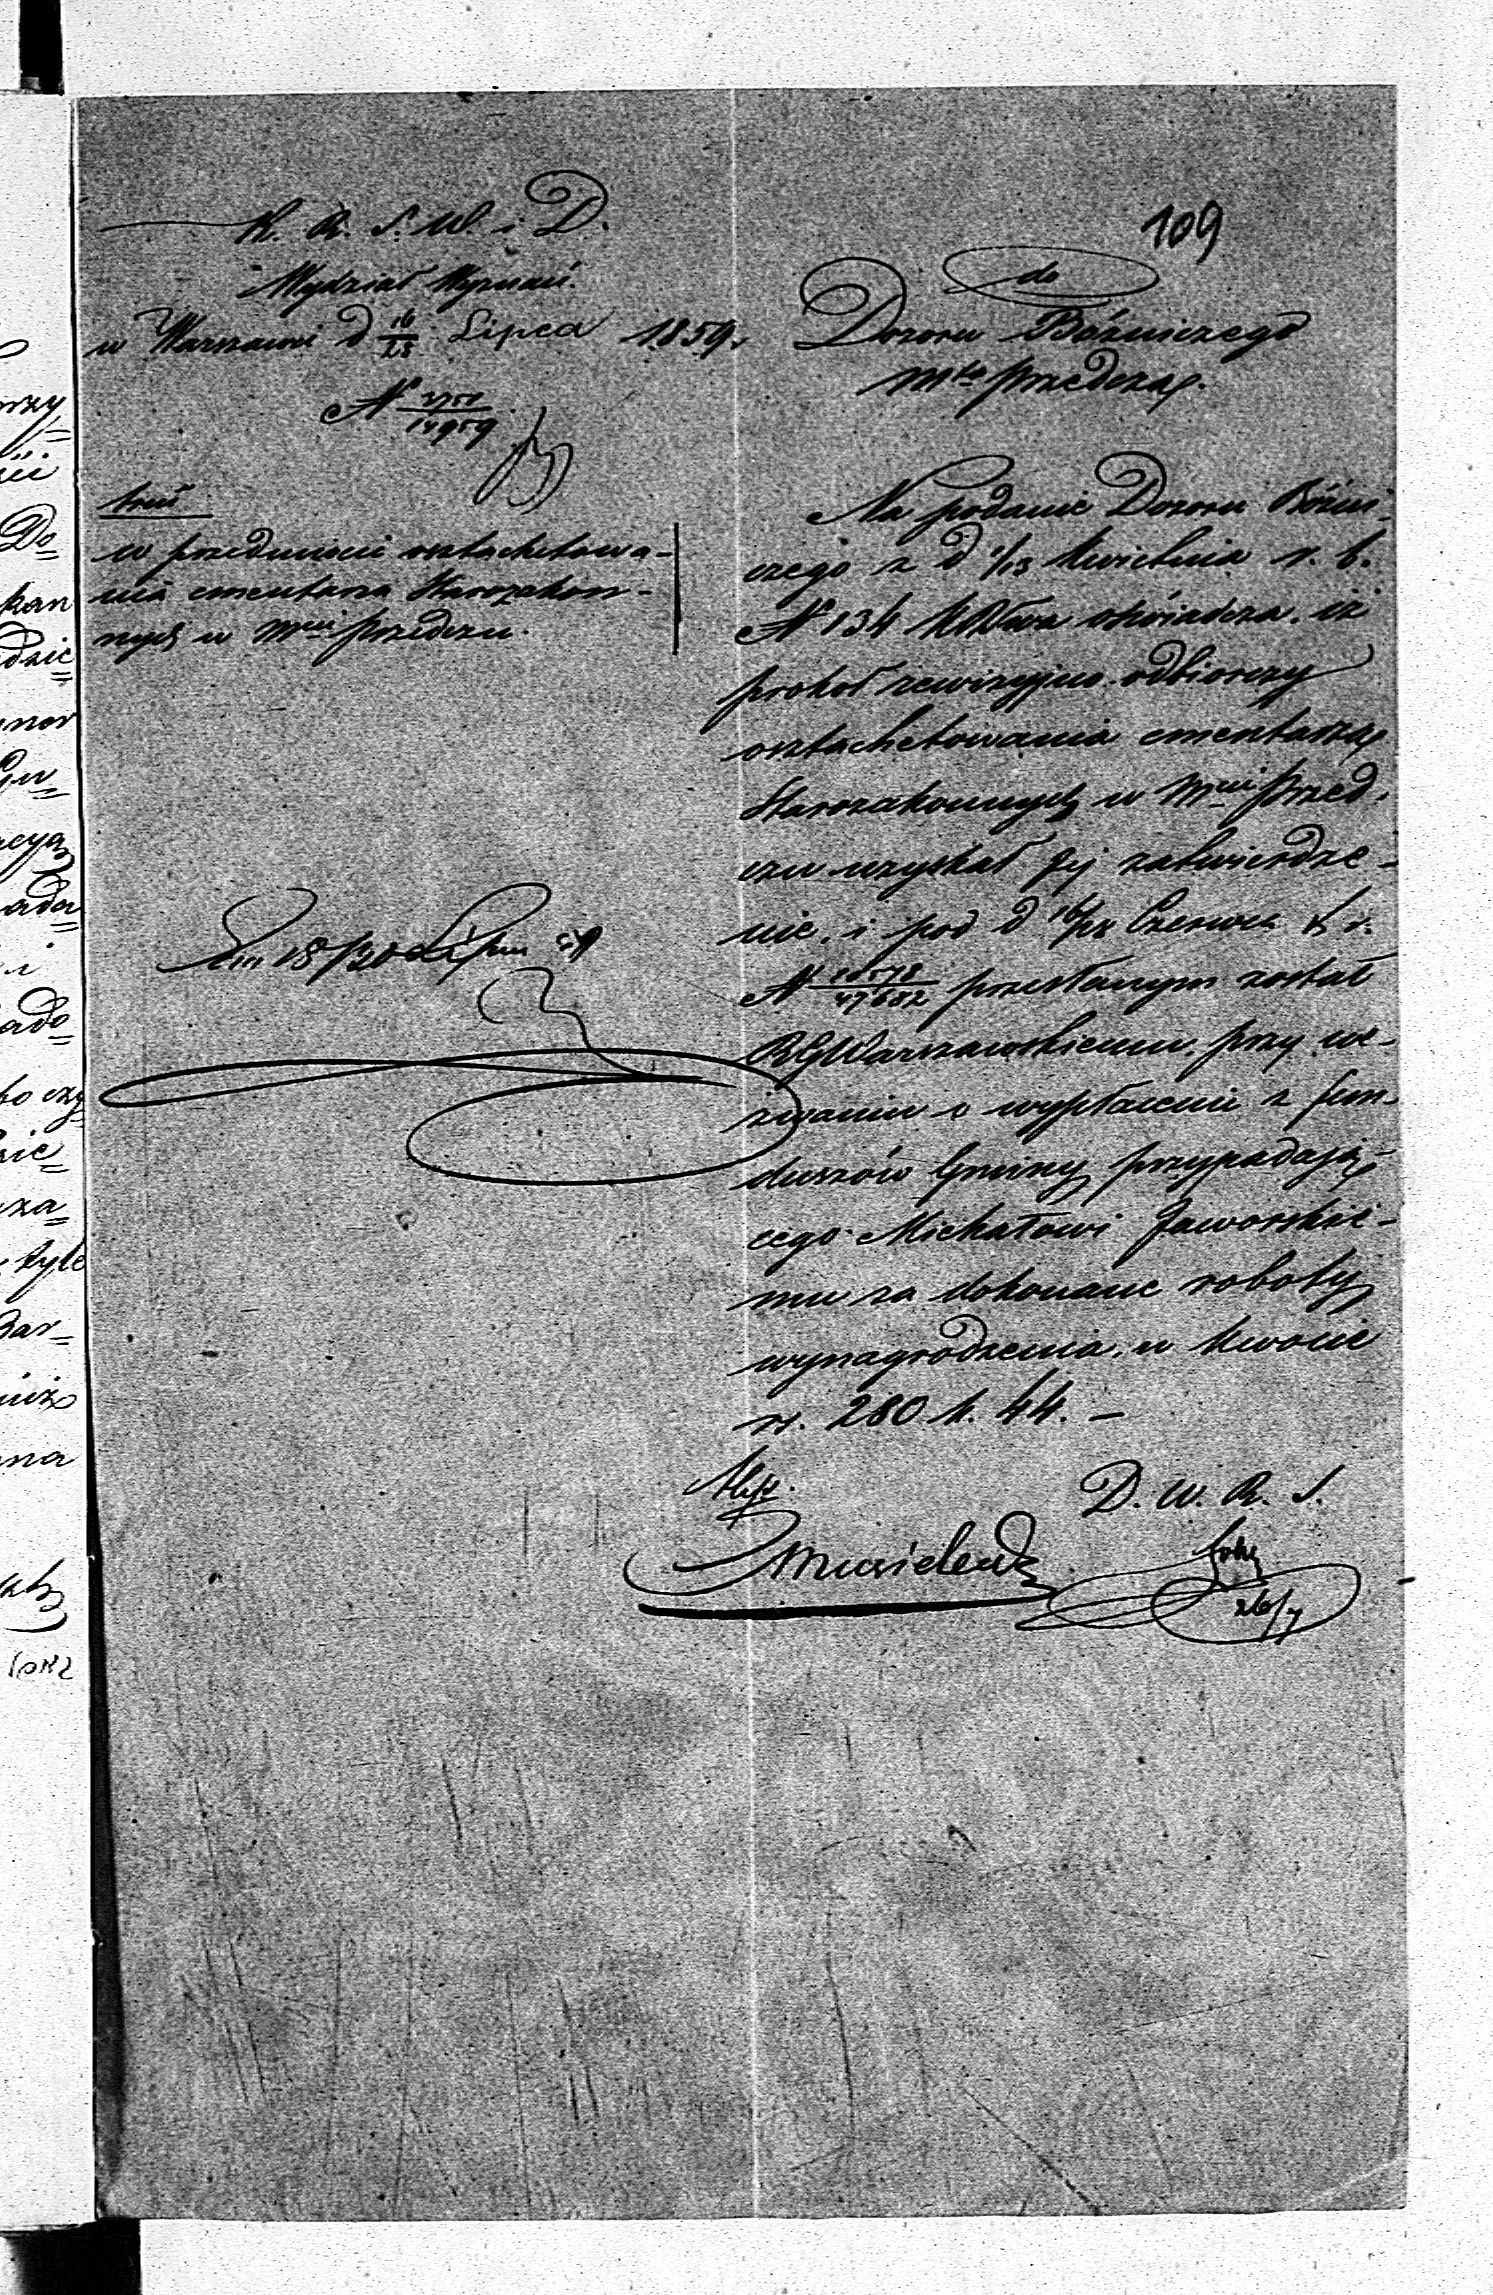 109
K. R. S. W. i D.
Wydział Wyznań.
w Warszawie d 16/28 Lipca 1859.
N 2751/14959
treść
w przedmiocie osztachetowa-
nia cmentarza Starozakon-
nych w mcie Przedczu.
Dn 18/30 Lipca 59
do
Dozoru Bóźniczego
mta Przedcza.
Na podanie Dozoru Bóźni-
czego z d 1/13 Kwietnia r. b.
N 134 oświadcza, iż
protokół rewizyjno-odbiorczy
osztachetowania cmentarza
Starozakonnych w mcie Przed-
czu uzyskał Jej zatwierdze-
nie, i pod d 16/28 Czerwca b r.
N 47682 przesłanym został
RGWarszawskiemu, przy we-
zwaniu o wypłacenie z fun-
duszów Gminy przypadają-
cego Michałowi Jaworskie-
mu za dokonane roboty
wynagrodzenia, w kwocie
rs. 280 k. 44. –
D. W. R. S.
26/7